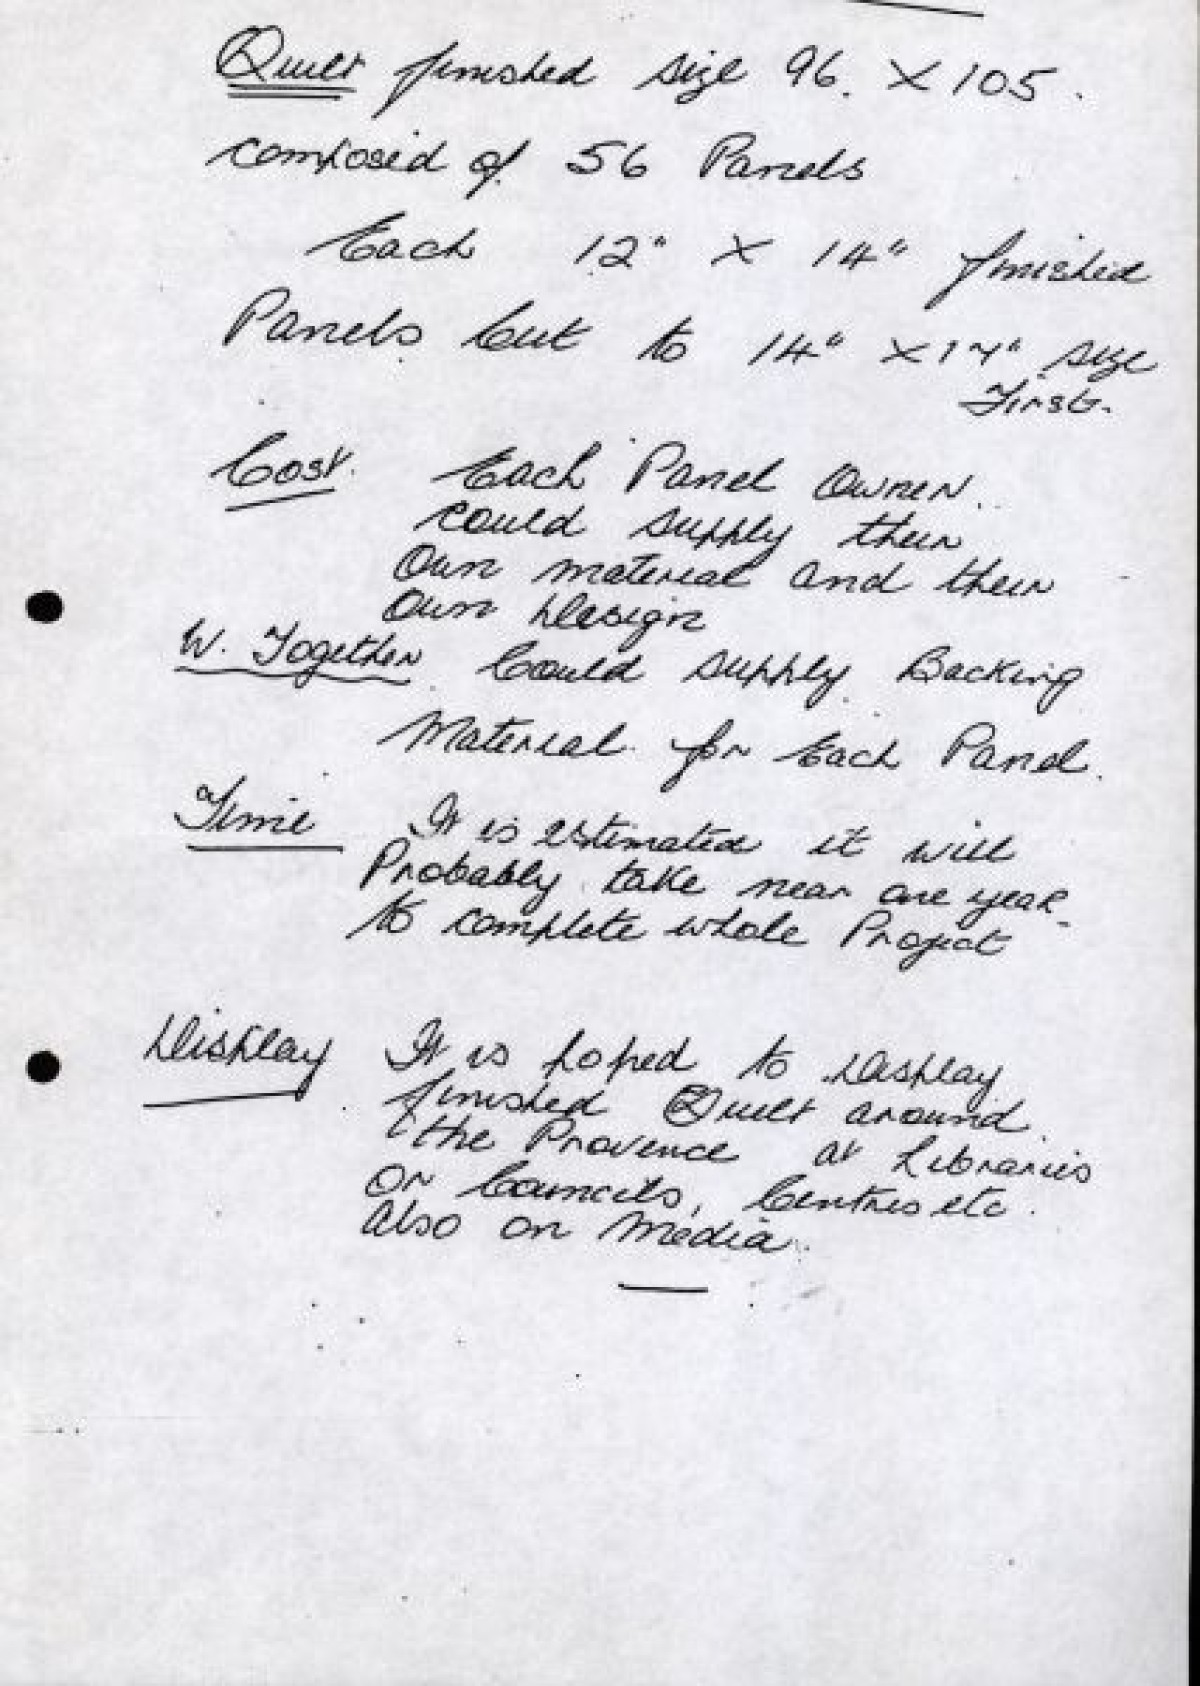 Quilt finished size 96. X 105.
composed of 56 Panels
Each 12" X 14" finished
Panels Cut to 14" X 17" size
First.
Cost. Each Panel Owner.
could supply their
Own material and their
Own Design
W. Together Could supply Backing
Material for Each Panel.
Time It is estimated it will
Probably take near one year
to complete whole Project
Display It is hoped to Display
finished Quilt around
the Provence at Libraries
or Councils, Centres etc.
also on Media.